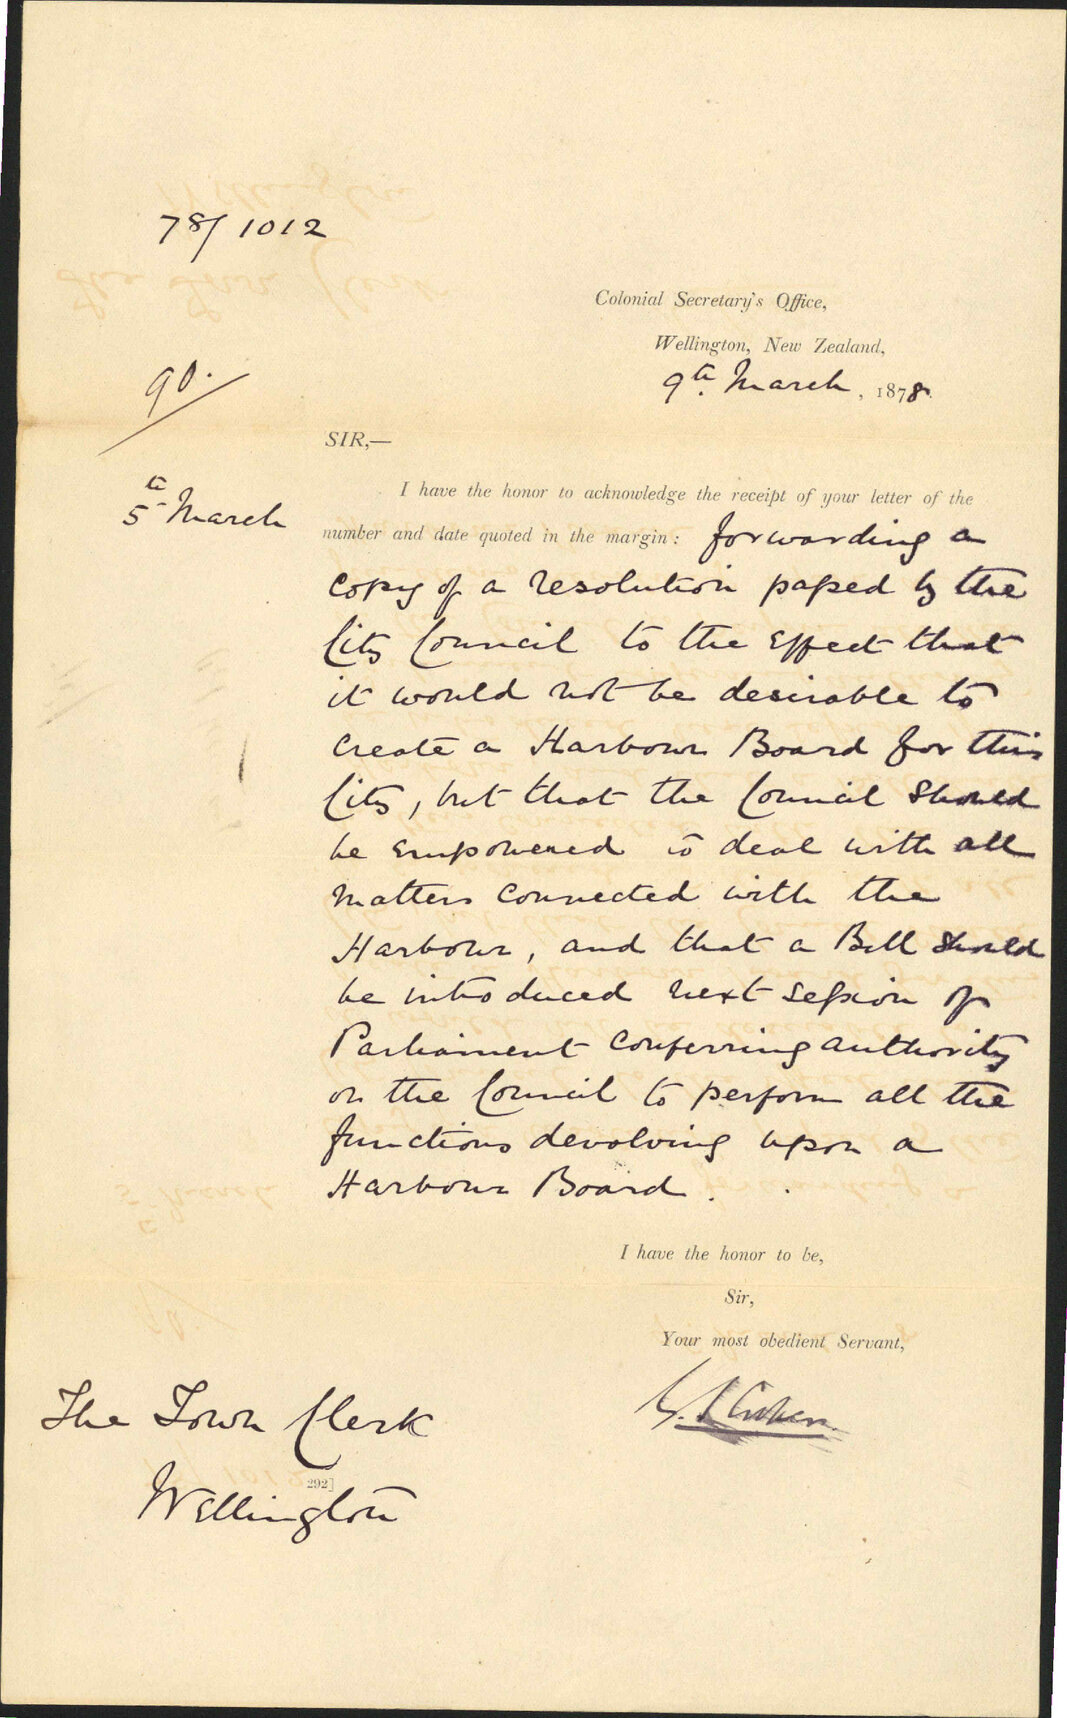 78/1012
Colonial Secretary's Office,
Wellington, New Zealand,
9th. March, 1878.
90.
SIR,—
5th March
I have the honor to acknowledge the receipt of your letter of the
number and date quoted in the margin: forwarding a
copy of a resolution passed by the
City Council to the effect that
it would not be desirable to
create a Harbour Board for this
City, but that the Council should
be empowered to deal with all
matters connected with the
Harbour, and that a Bill should
be introduced next session of
Parliament conferring authority
on the Council to perform all the
functions devolving upon a
Harbour Board.
I have the honor to be,
Sir,
Your most obedient Servant,
The Town Clerk
292]
Wellington